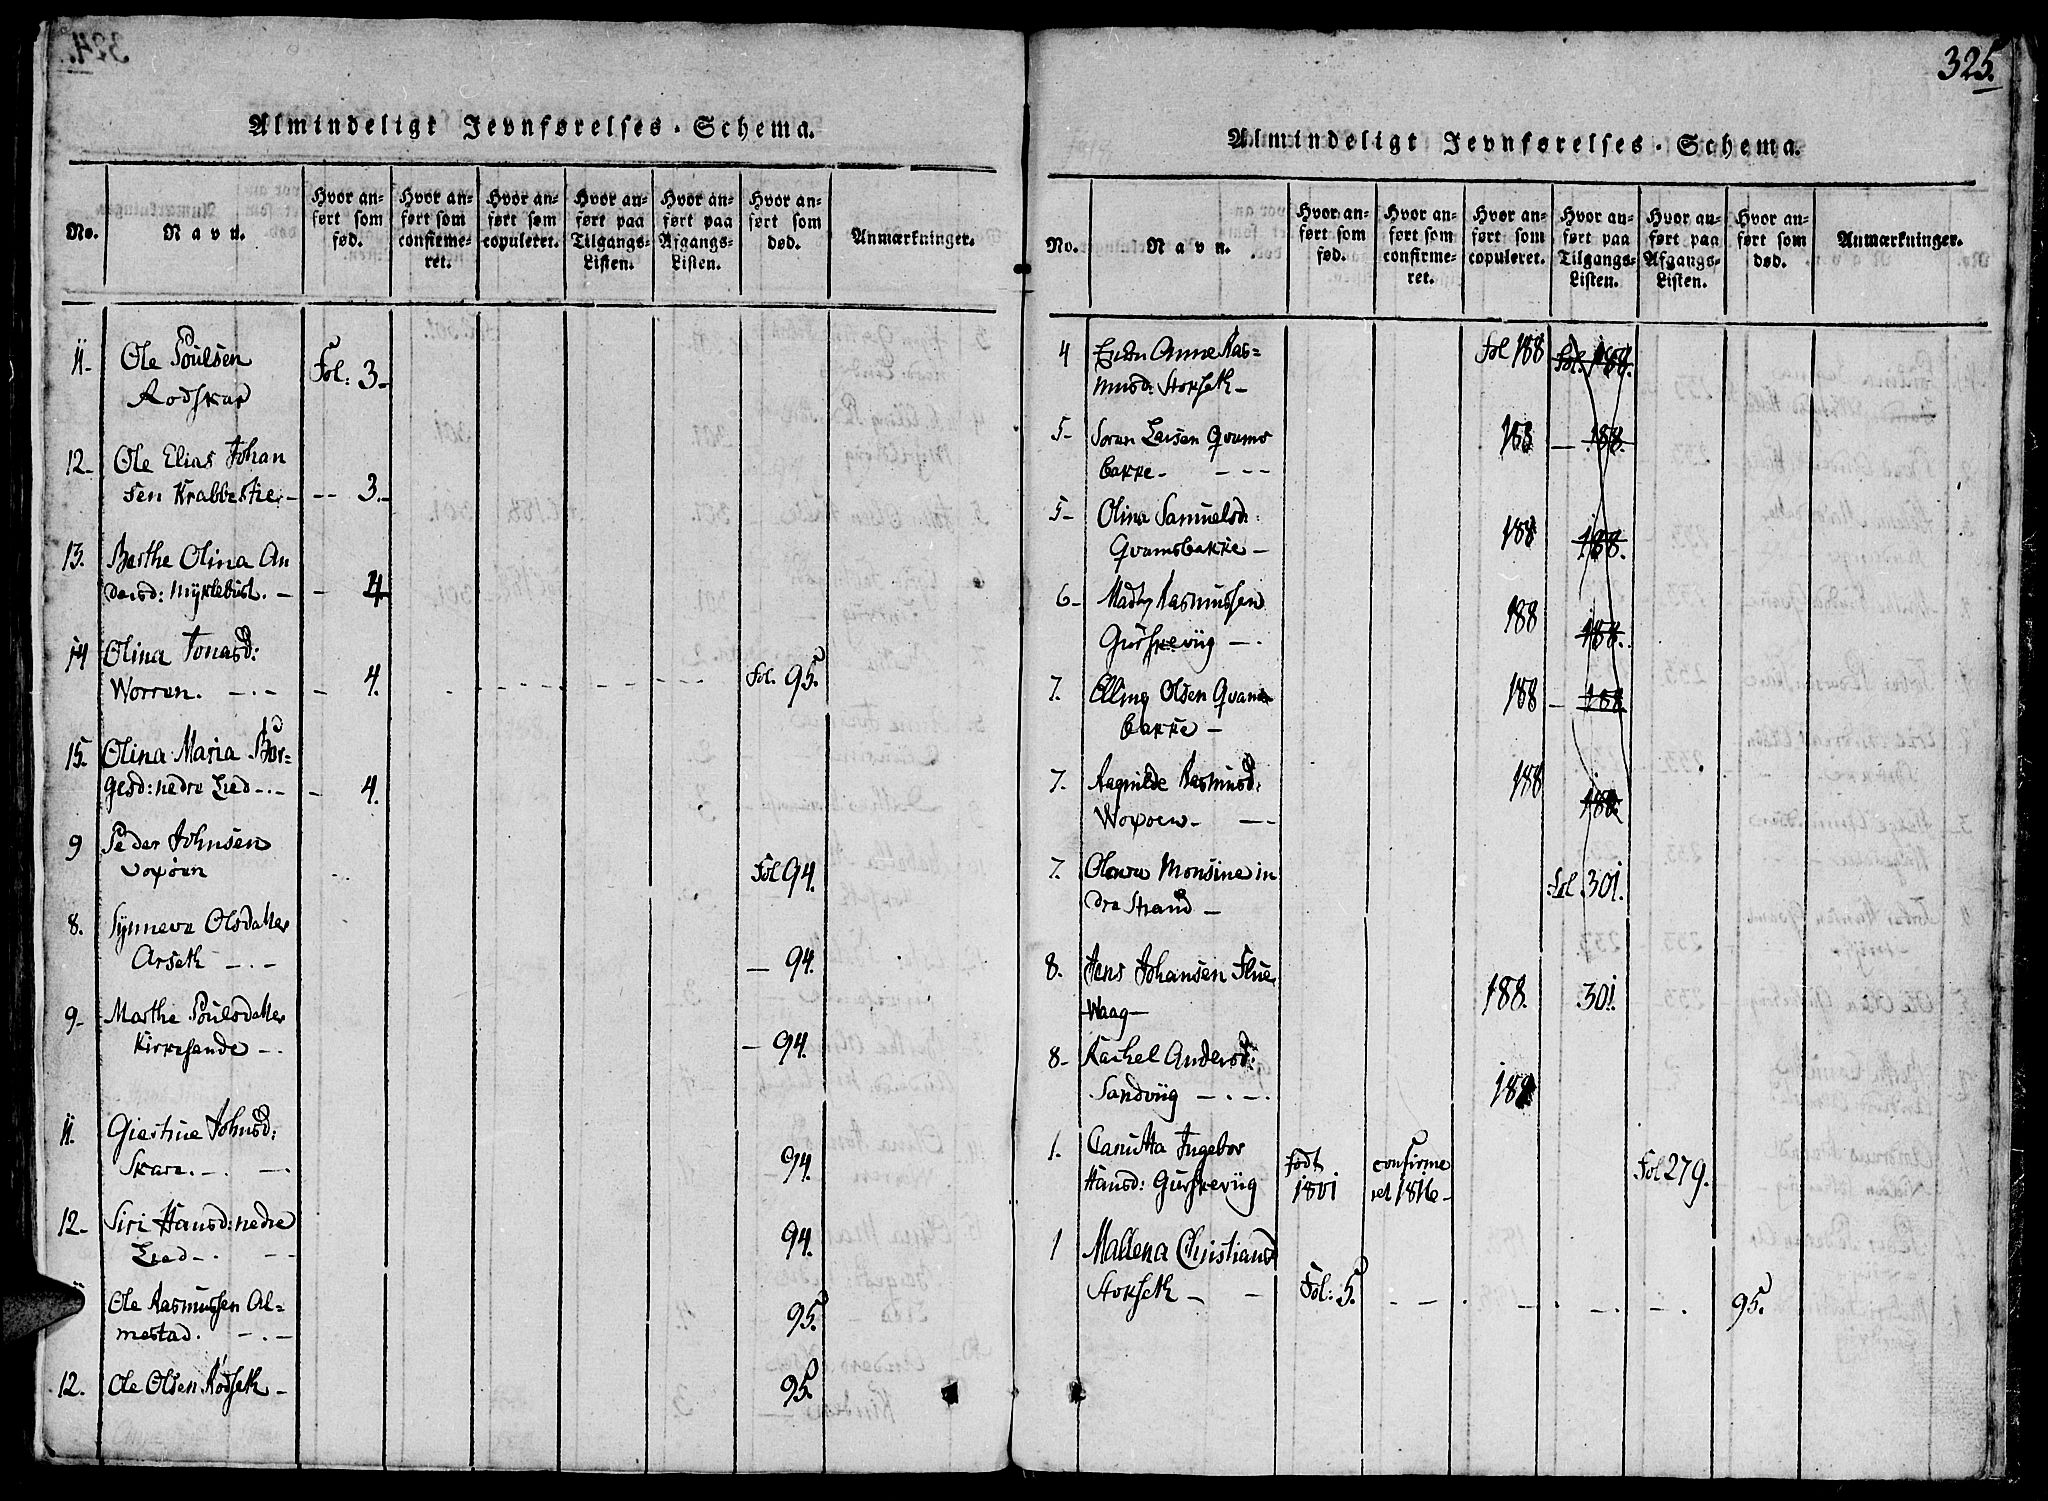 Almindeligt Jevnførelses-Schema.
No.
Navn.
Hvor an-
ført som
fød.
Hvor an-
ført som
confirme-
ret.
Hvor an-
ført som
copuleret.
Hvor an-
ført paa
Tilgangs-
Listen.
Hvor an-
ført paa
Afgangs-
Listen.
Hvor an-
ført som
død.
Anmærkninger.
11. Ole Poulsen
Rodskar Fol: 3.
12. Ole Elias Johan
sen Krabbestie - -- 3.
13. Berthe Olina An
dersd: Myklebust. - - 4
14 Olina Jonasd:
Worren. - 4. Fol. 95.
15. Olina Maria Bør-
gesd: nedre Lied - - 4.
9 Peder Johnsen
Voxøen Fol 94.
8. Synneva Olsdatter
Arseth - 94.
9- Marthe Poulsdatter
Kirkesande - 94.
11. Giertrue Johnsd:
Skare. - 94.
12- Siri Hansd: nedre
Lied - 94.
11 Ole Rasmussen Al-
mestad. - 95.
12. Ole Olsen Rødseth - 95.
325.
Almindeligt Jevnførelses-Schema.
No.
Navn.
Hvor an-
ført som
fød.
Hvor an-
ført som
confirme-
ret.
Hvor an-
ført som
copuleret.
Hvor an-
ført paa
Tilgangs-
Listen.
Hvor an-
ført paa
Afgangs-
Listen.
Hvor an-
ført som
død.
Anmærkninger.
4 Anne Ras- Fol 188 Fol. 188.
musd: Storseth -
5- Soren Larsen Qvams 188 - 188.
bakke -
5- Olina Samuelsd:
Qvamsbakke - 188 188.
6- Mads Rasmussen
Gurskeviig - 188 188.
7. Elling Olsen Qvams 188 - 188
bakke -
7. Ragnilde Rasmusd: 188
Woxoen - 188.
7. Monsine in Fol 301.
dre Strand -
8. Jens Johansen Flue 188. 301.
Waag -
8- Rachel Andersd:
Sandviig - 188
1. Canutta Ingebor Født confirme Fol 279.
Hansd: Gurskeviig 1801 ret 1816 -
1 Mallena Christiansd
Storseth - Fol: 5. 95.